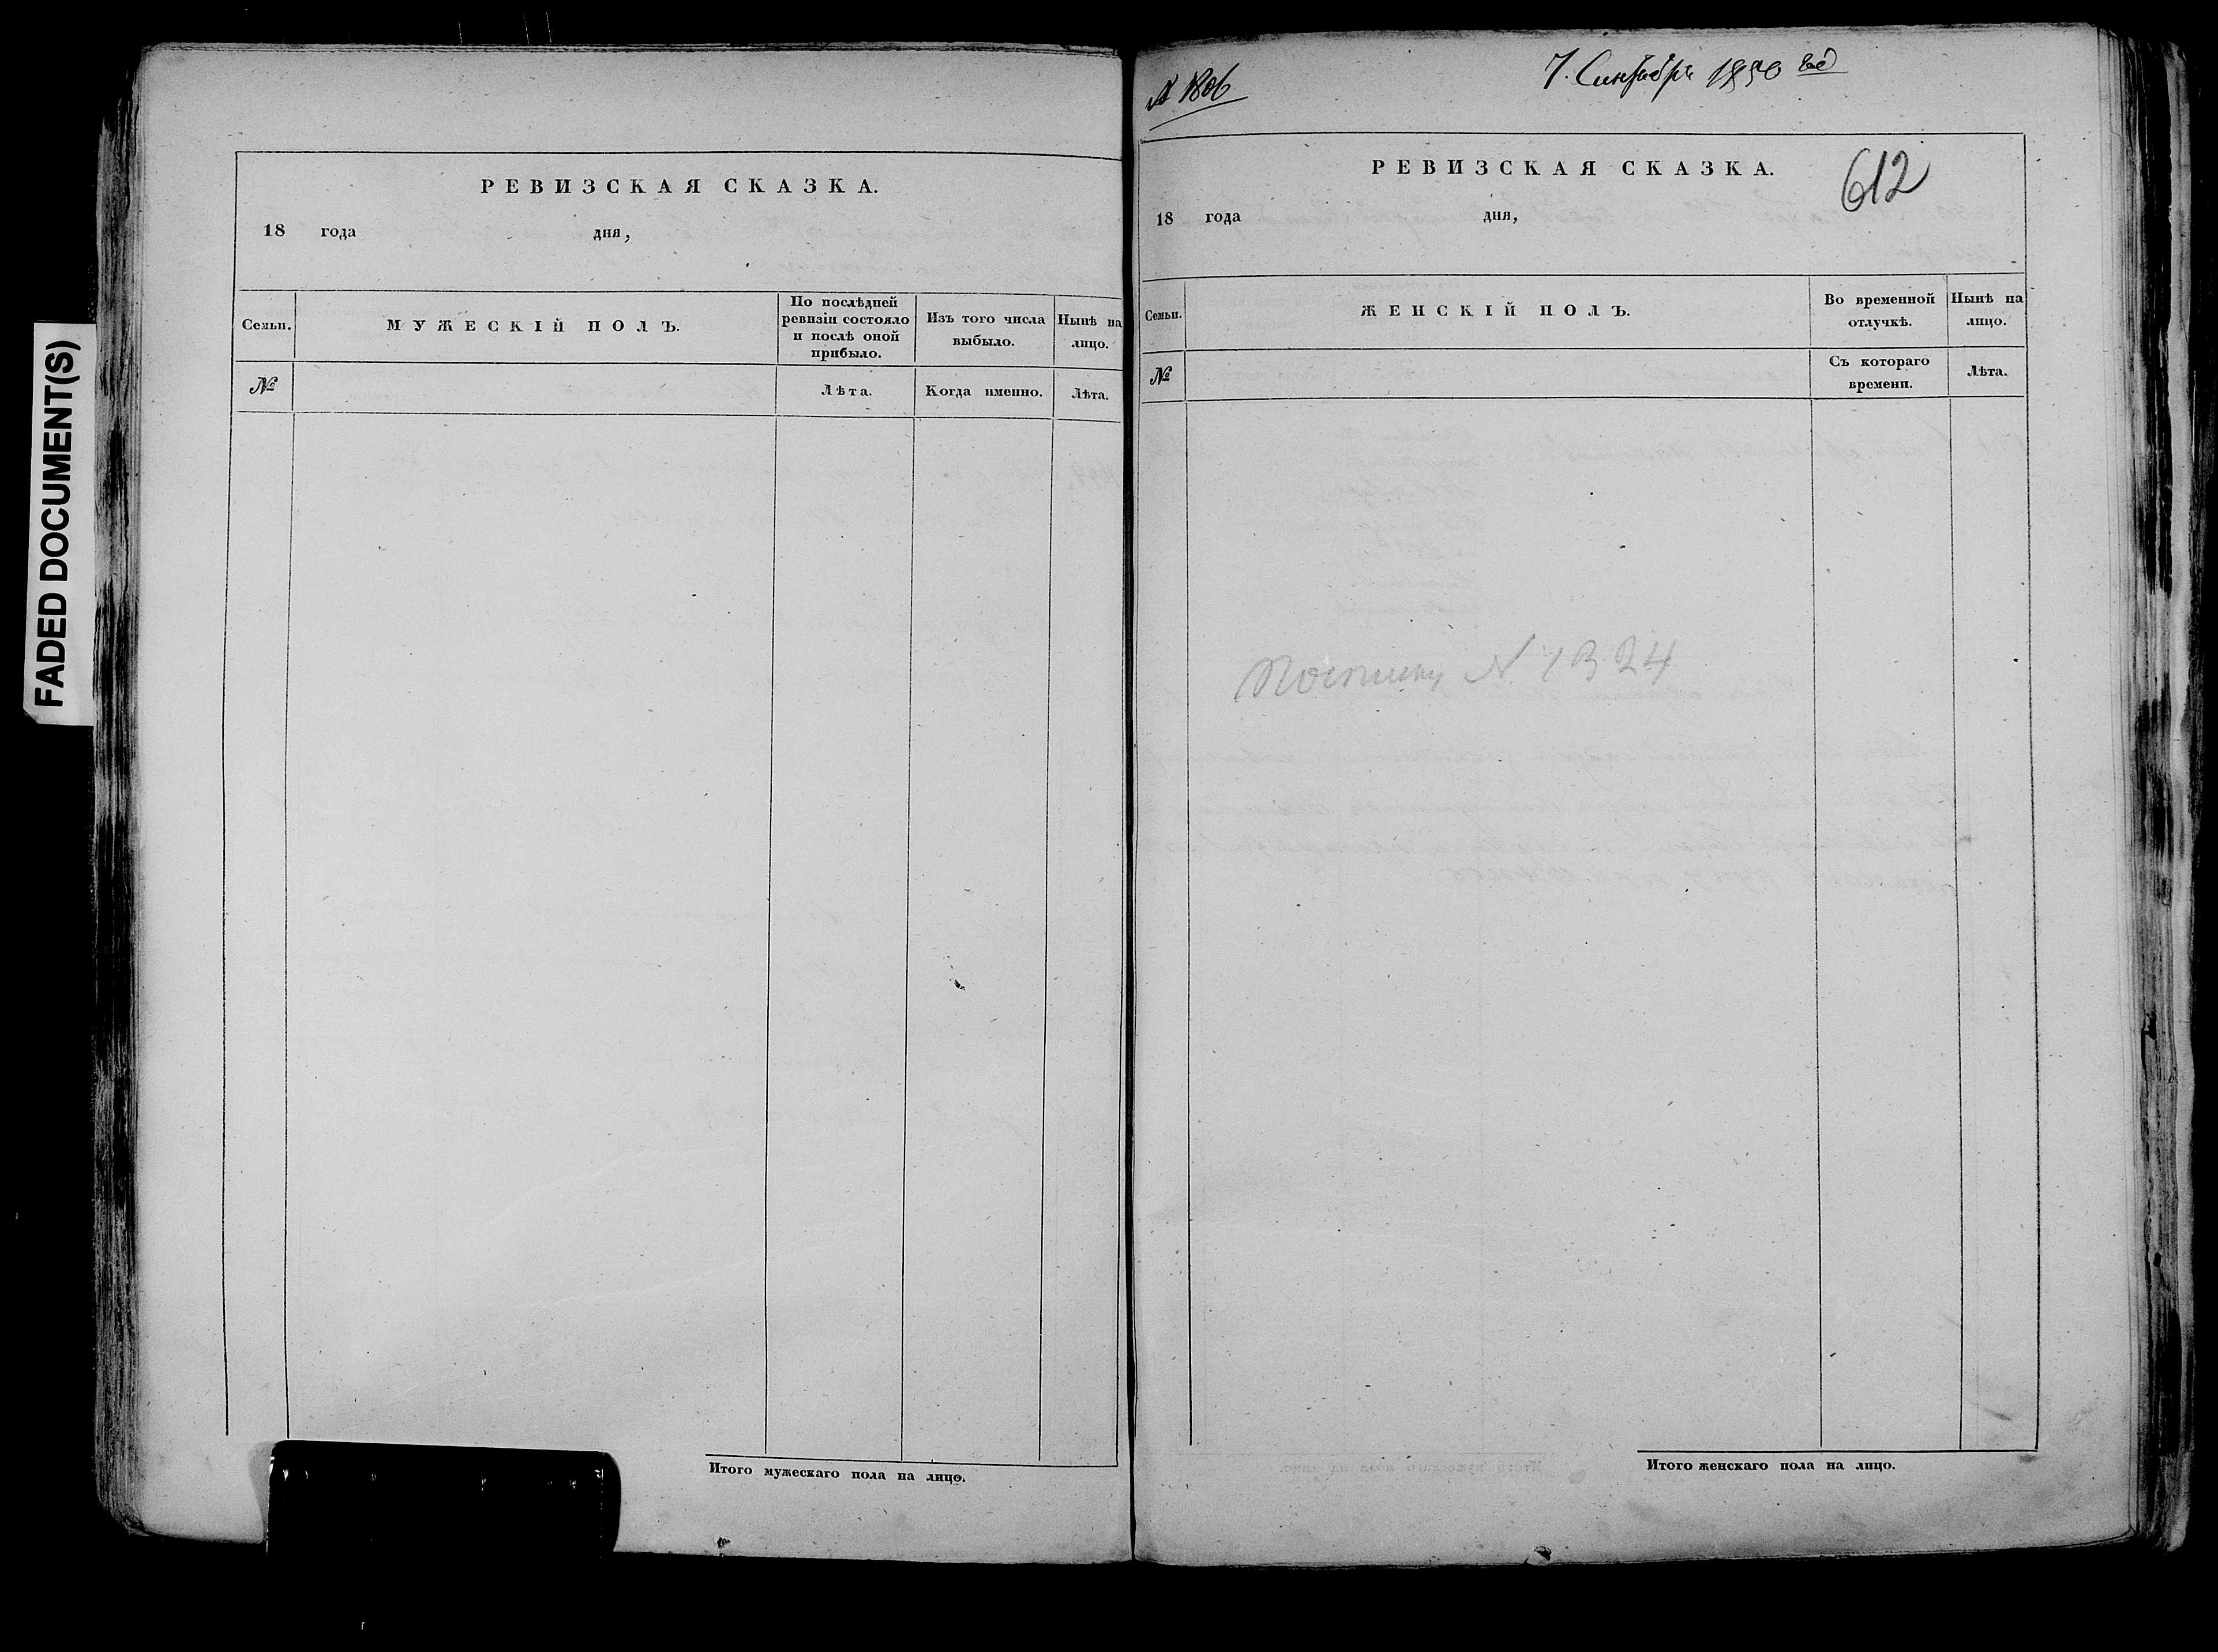 FADED DOCUMENT(S)
РЕВИЗСКАЯ СКАЗКА.
18 года дня,
Семьи. МУЖЕСКІЙ ПОЛЪ. По послѣдней ревизіи состояло и послѣ оной прибыло. Изъ того числа выбыло. Нынѣ на лицо.
№ Лѣта. Когда именно. Лѣта.
Итого мужескаго пола на лицо.
№ 1806
7. Сентября 1850 год
РЕВИЗСКАЯ СКАЗКА.
612
18 года дня,
Семьи. ЖЕНСКІЙ ПОЛЪ. Во временной отлучкѣ. Нынѣ на лицо.
№ Съ котораго времени. Лѣта.
N 1324
Итого женскаго пола на лицо.